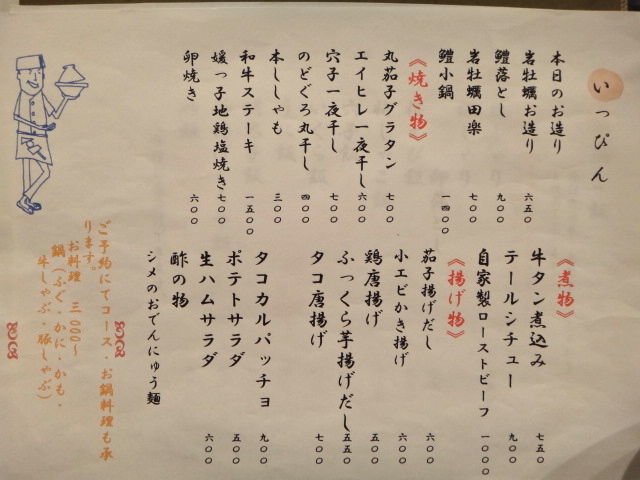 いっぴん
本日のお造り
岩牡蠣お造り 六五〇
鱧落とし 九〇〇
岩牡蠣田楽 七〇〇
鱧小鍋 一四〇〇
《焼き物》
丸茄子グラタン 七〇〇
エイヒレ一夜干し 六〇〇
穴子一夜干し 七〇〇
のどぐろ丸干し 四〇〇
本ししゃも 三〇〇
和牛ステーキ 一五〇〇
媛っ子地鶏塩焼き 七〇〇
卵焼き 六〇〇
《煮物》
牛タン煮込み 七五〇
テールシチュー 九〇〇
自家製ローストビーフ 一〇〇〇
《揚げ物》
茄子揚げだし 六〇〇
小エビかき揚げ 六〇〇
鶏唐揚げ 五〇〇
ふっくら芋揚げだし 五五〇
タコ唐揚げ 七〇〇
タコカルパッチョ 九〇〇
ポテトサラダ 五〇〇
生ハムサラダ 六〇〇
酢の物
シメのおでんにゅう麺
ご予約にてコース・お鍋料理も承
ります。
お料理 三〇〇〇〜
鍋(ふぐ・かに・かも・
牛しゃぶ・豚しゃぶ)